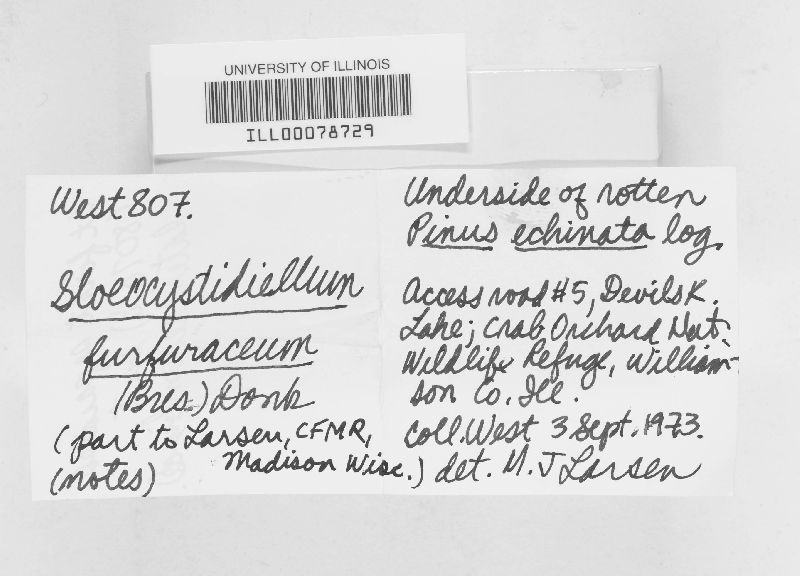 UNIVERSITY OF ILLINOIS
ILL00078729
West 807.
Gloeocystidiellum
furfuraceum
(Bres.) Donk
(part to Larsen, CFMR,
Madison Wisc.)
(notes)
Underside of rotten
Pinus echinata log,
Access road #5, Devils K.
Lake; Crab Orchard Nat.
Wildlife Refuge, William-
son Co. Ill.
coll. West 3 Sept. 1973.
det. M. J Larsen